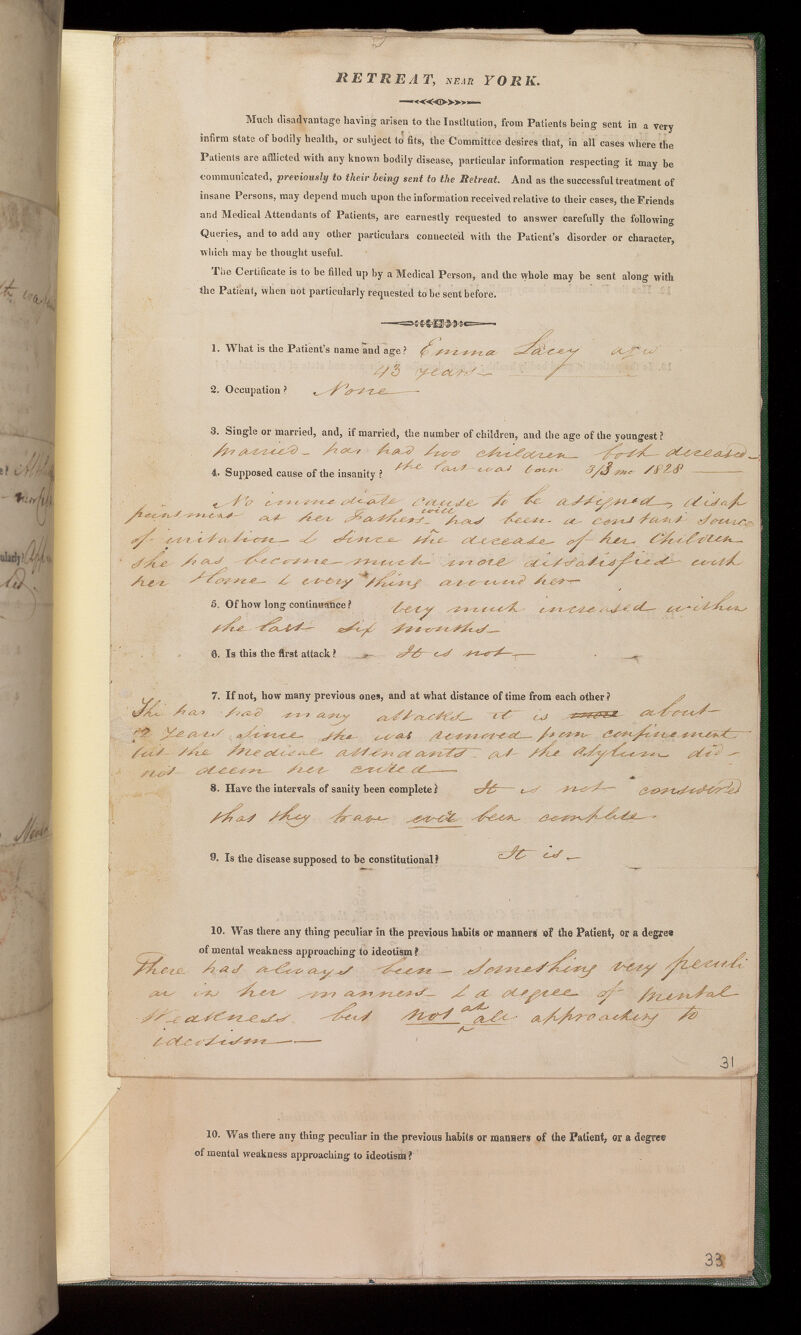 RETREAT, NEAR YORK.
Much disadvantage having arisen to the Institution, from Patients being sent in a very
infirm state of bodily health, or subject to fits, the Committee desires that, in all cases where the
Patients are afflicted with any known bodily disease, particular information respecting it may be
communicated, previously to their being sent to the Retreat. And as the successful treatment of
insane Persons, may depend much upon the information received relative to their cases, the Friends
and Medical Attendants of Patients, are earnestly requested to answer carefully the following
Queries, and to add any other particulars connected with the Patient's disorder or character,
which may be thought useful.
The Certificate is to be filled up by a Medical Person, and the whole may be sent along with
the Patient, when not particularly requested to be sent before.
1. What is the Patient's name and age? Emma Lacey age
43 years
2. Occupation? None
3. Single or married, and, if married, the number of children, and the age of the youngest?
Married - has had two children both deceased
the last was born 3/3 mo 1828
4. Supposed cause of the insanity?
No immediate cause to be assigned, disap
pointment at her Fathers will has been a constant source
of irritation & since the decease of her Children
she has become much more dissatisfied with
her Home & every thing around her
5. Of how long continuance? very much increased within
the last six months
6. Is this the first attack? It is not
7. If not, how many previous ones, and at what distance of time from each other?
She has had many attacks it is about
years since she was removed from confinement
but the Medical attendants at the Asylum did
not deem her cured
8. Have the intervals of sanity been complete? It is not considered
that they have ever been complete.
9. Is the disease supposed to be constitutional? It is
10. Was there any thing peculiar in the previous habits or manners of the Patient, or a degree
of mental weakness approaching to ideotism?
There has always been - something very peculi
ar in her manners & a degree of Mental
Weakness but not at all approaching to
ideotism
31
10. Was there any thing peculiar in the previous habits or manners of the Patient, or a degree
of mental weakness approaching to ideotism?
33